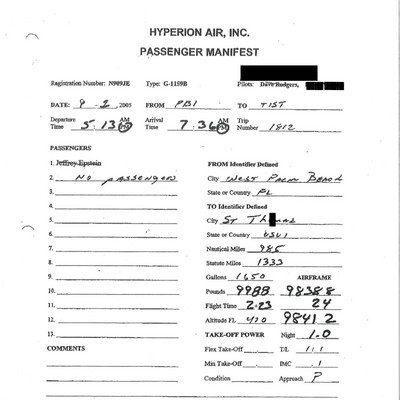 HYPERION AIR, INC.
PASSENGER MANIFEST
Registration Number: N909JE Type: G-1159B Pilots: Dave Rodgers,
DATE: 9-2, 2005 FROM PBI TO TIST
Departure Time 5:13 AM PM Arrival Time 7:36 AM PM Trip Number 1812
PASSENGERS
1. Jeffrey Epstein FROM Identifier Defined
2. NO PASSENGERS City WEST PALM BEACH
3. State or Country FL
4. TO Identifier Defined
5. City ST Th mas
6. State or Country USVI
7. Nautical Miles 985
8. Statute Miles 1333
9. Gallons 1650 AIRFRAME
10. Pounds 9988 98388
11. Flight Time 2:23 24
12. Altitude FL 410 98412
13. TAKE-OFF POWER Night 1.0
COMMENTS Flex Take-Off T/L 1/1
Min Take-Off IMC .1
Condition Approach P